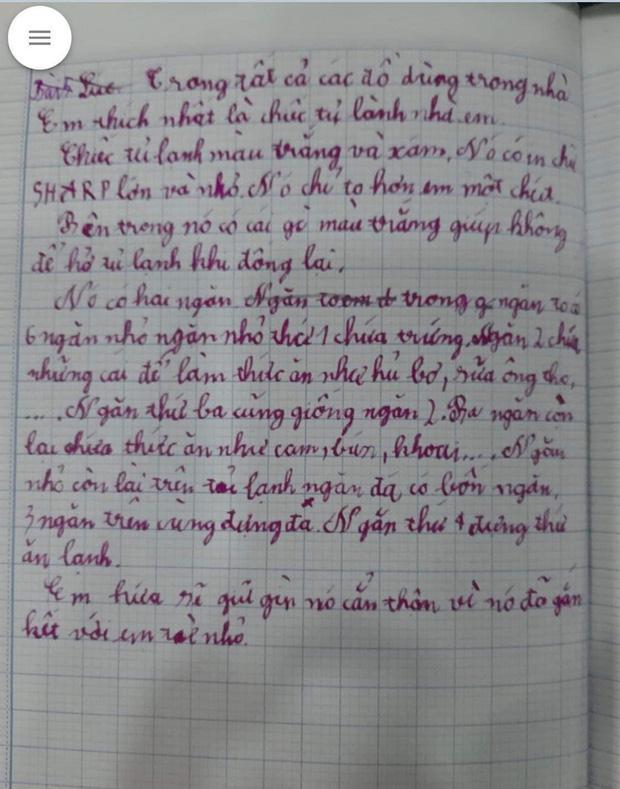 Trong tất cả các đồ dùng trong nhà
Em thích nhất là chiếc tủ lành nhà em.
Chiếc tủ lanh màu trắng và xám. Nó có in chữ
SHARP lớn và nhỏ. Nó chỉ to hơn em một chút.
Bên trong nó có cái gờ màu trắng giúp không
để hở tủ lạnh khi đông lại.
Nó có hai ngăn trong ngăn to có
6 ngăn nhỏ ngăn nhỏ thứ 1 chứa trứng. Ngăn 2 chứa
những cái để làm thức ăn như hủ bơ, sữa ông thọ,
.... Ngăn thứ ba cũng giống ngăn 2. Ba ngăn còn
lại chứa thức ăn như cam, bún, khoai.... Ngăn
nhỏ còn lài trên lạnh ngăn đá có bốn ngăn,
3 ngăn trên cùng đựng đá. Ngăn thứ 4 đựng thứ
ăn lanh.
Em hứa sẽ giữ gìn nó cẩn thân vì nó đã gắn
kết với em từ nhỏ.